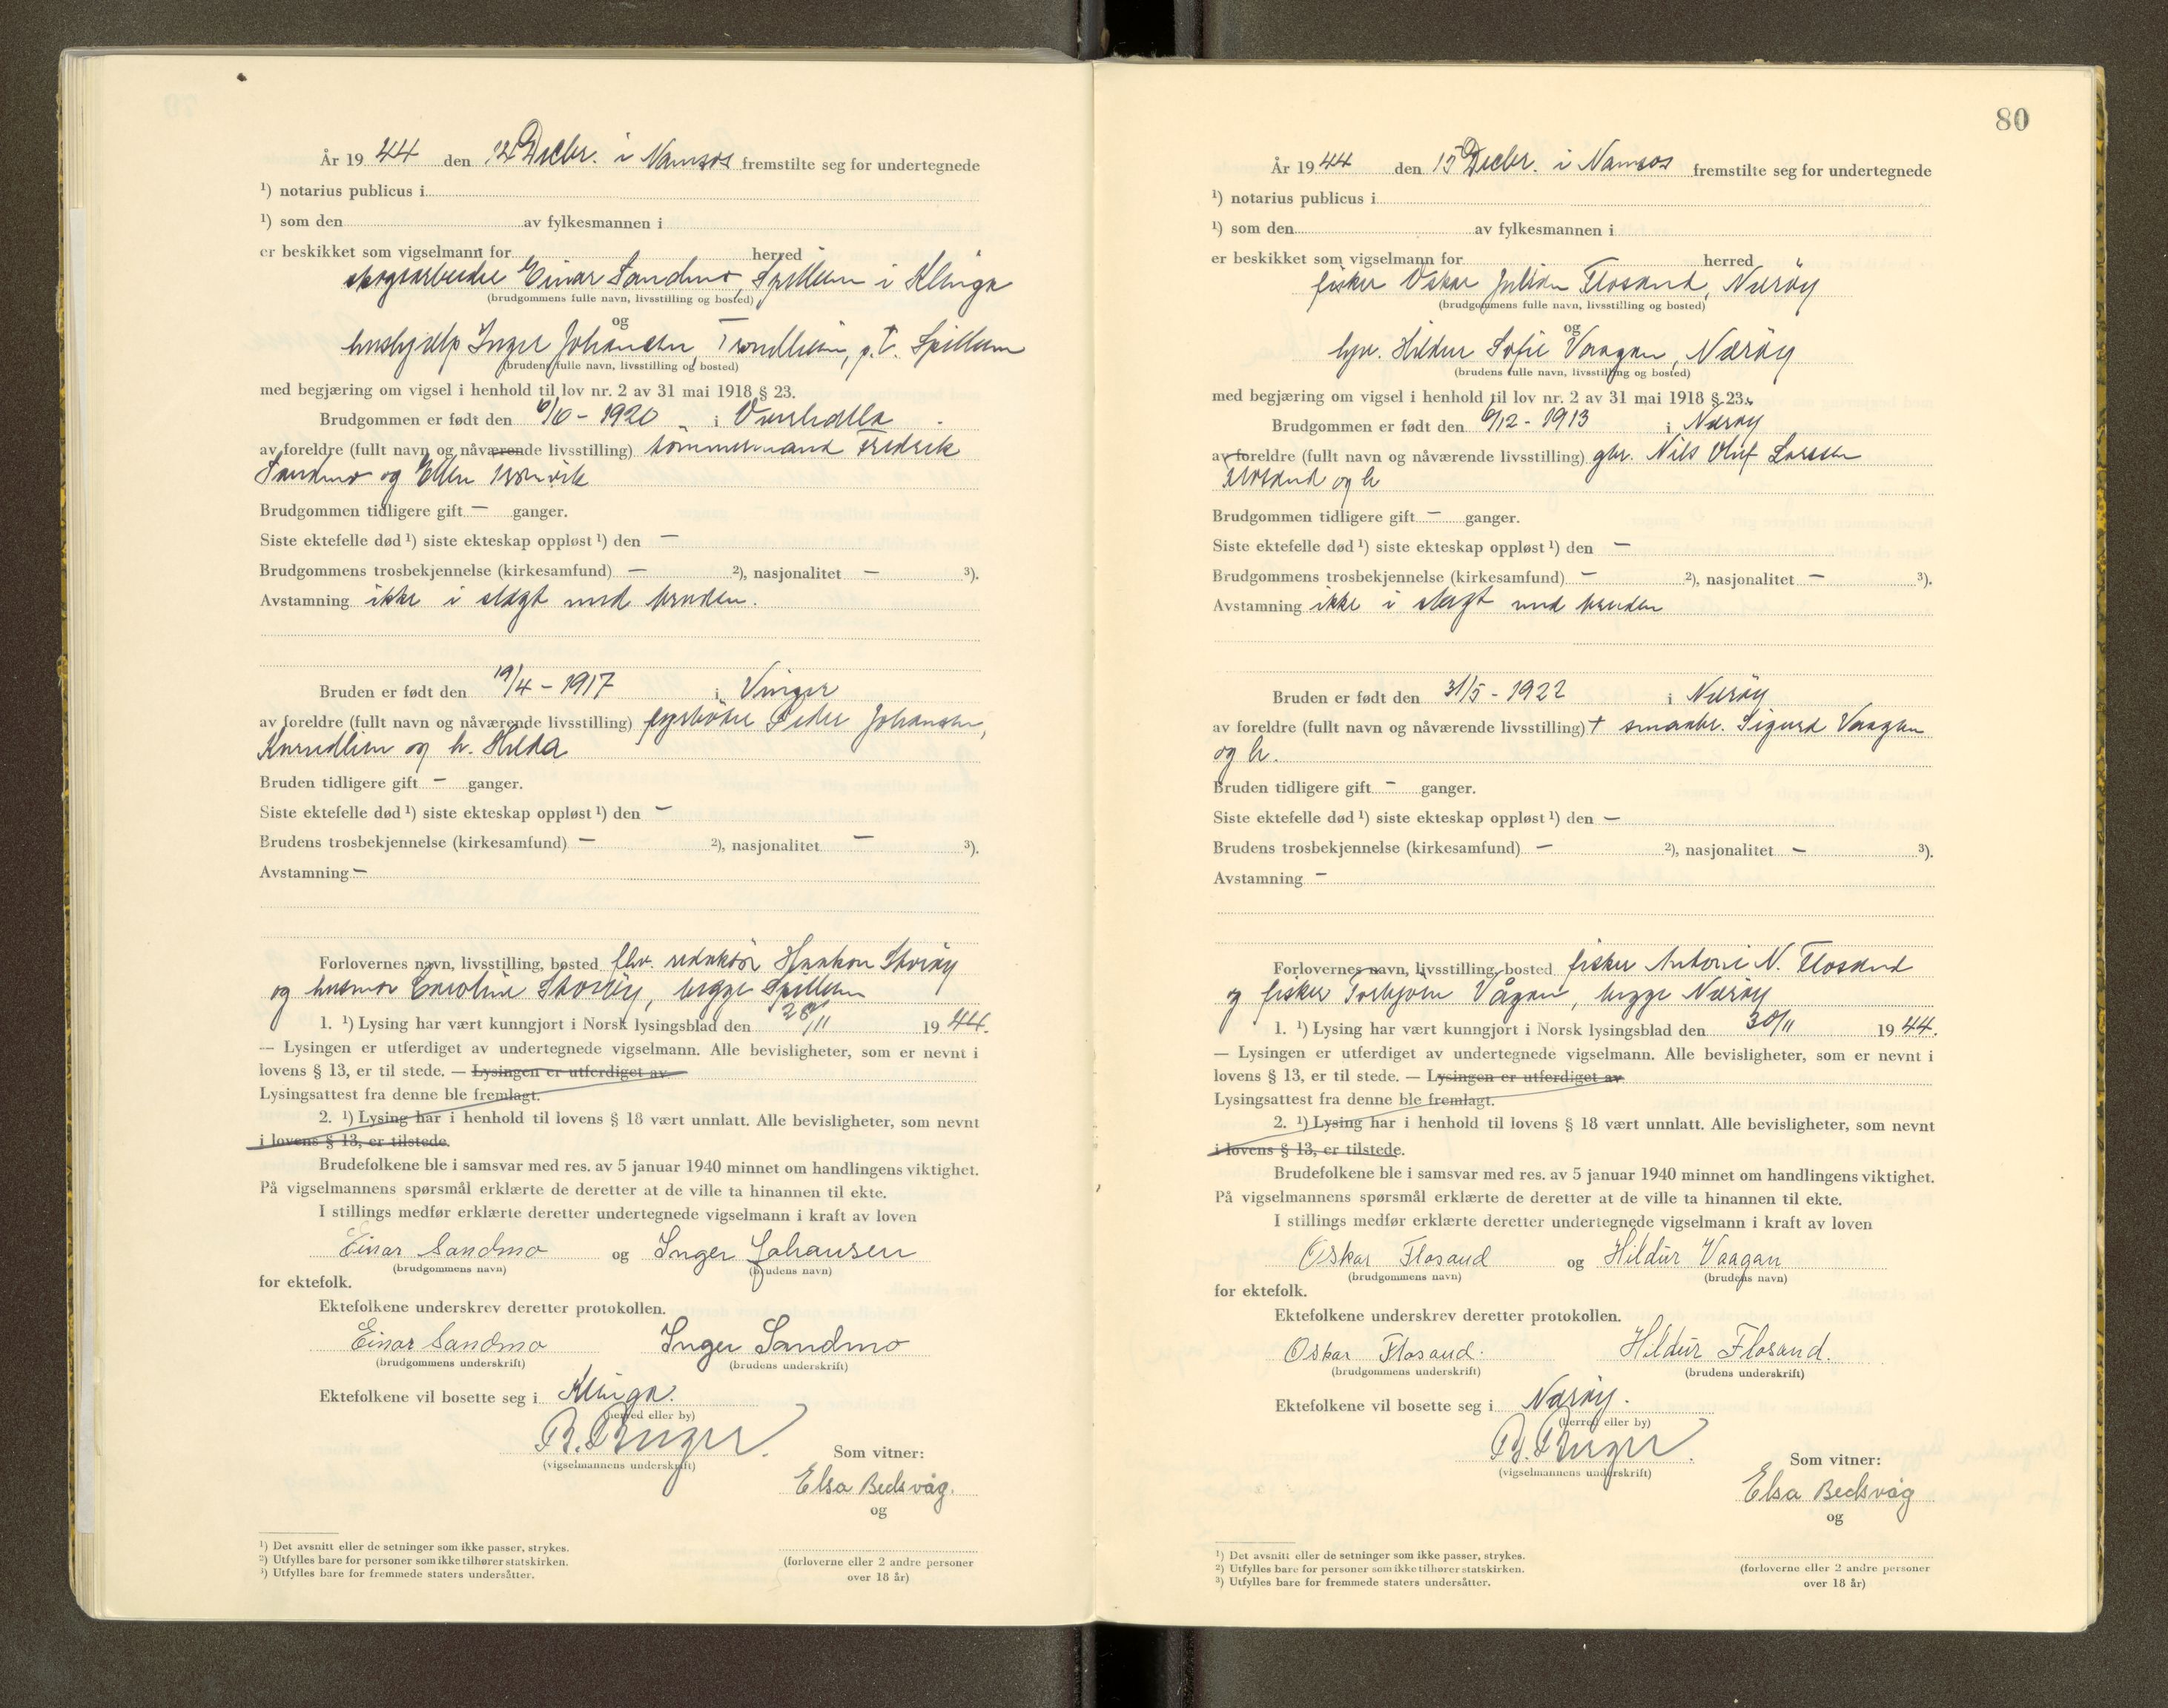 År 19 44 den 12 Decbr. i Namsos fremstilte seg for undertegnede
¹) notarius publicus i
¹) som den av fylkesmannen i
er beskikket som vigselmann for herred
skogsarbeider Einar Sandmo, Spillum i Klinga
(brudgommens fulle navn, livsstilling og bosted)
og
hushjelp Inger Johansen, Trondheim, p.t. Spillum
(brudens fulle navn, livsstilling og bosted)
med begjæring om vigsel i henhold til lov nr. 2 av 31 mai 1918 § 23.
Brudgommen er født den 6/10 - 1920 i Overhalla
av foreldre (fullt navn og nåværende livsstilling) tømmermand Fredrik
Sandmo og Ellen
Brudgommen tidligere gift — ganger.
Siste ektefelle død ¹) siste ekteskap oppløst ¹) den —
Brudgommens trosbekjennelse (kirkesamfund) — ²), nasjonalitet — ³).
Avstamning ikke i slægt med bruden.
Bruden er født den 19/4 - 1917 i Vinger
av foreldre (fullt navn og nåværende livsstilling) fyrbøter Peder Johansen,
og h. Hilda
Bruden tidligere gift — ganger.
Siste ektefelle død ¹) siste ekteskap oppløst ¹) den —
Brudens trosbekjennelse (kirkesamfund) — ²), nasjonalitet — ³).
Avstamning —
Forlovernes navn, livsstilling, bosted fhv. redaktør Haakon Storøy
og husmor Caroline Storøy, begge Spillum
1. ¹) Lysing har vært kunngjort i Norsk lysingsblad den 28/11 19 44.
— Lysingen er utferdiget av undertegnede vigselmann. Alle bevisligheter, som er nevnt i
lovens § 13, er til stede. — Lysingen er utferdiget av
Lysingsattest fra denne ble fremlagt.
2. ¹) Lysing har i henhold til lovens § 18 vært unnlatt. Alle bevisligheter, som nevnt
i lovens § 13, er tilstede.
Brudefolkene ble i samsvar med res. av 5 januar 1940 minnet om handlingens viktighet.
På vigselmannens spørsmål erklærte de deretter at de ville ta hinannen til ekte.
I stillings medfør erklærte deretter undertegnede vigselmann i kraft av loven
Einar Sandmo og Inger Johansen
(brudgommens navn) (brudens navn)
for ektefolk.
Ektefolkene underskrev deretter protokollen.
Einar Sandmo Inger Sandmo
(brudgommens underskrift) (brudens underskrift)
Ektefolkene vil bosette seg i Klinga.
(herred eller by)
(vigselmannens underskrift)
Som vitner:
Elsa Bedsvåg.
og
¹) Det avsnitt eller de setninger som ikke passer, strykes.
²) Utfylles bare for personer som ikke tilhører statskirken.
³) Utfylles bare for fremmede staters undersåtter.
(forloverne eller 2 andre personer
over 18 år)
80
År 19 44 den 15 Decbr. i Namsos fremstilte seg for undertegnede
¹) notarius publicus i
¹) som den av fylkesmannen i
er beskikket som vigselmann for herred
fisker Oskar Julian Flosand, Nærøy
(brudgommens fulle navn, livsstilling og bosted)
og
hjv. Hildur Sofie Vaagan, Nærøy
(brudens fulle navn, livsstilling og bosted)
med begjæring om vigsel i henhold til lov nr. 2 av 31 mai 1918 § 23.
Brudgommen er født den 6/12 - 1913 i Nærøy
av foreldre (fullt navn og nåværende livsstilling) gbr. Nils Oluf Larsen
Flosand og h
Brudgommen tidligere gift — ganger.
Siste ektefelle død ¹) siste ekteskap oppløst ¹) den —
Brudgommens trosbekjennelse (kirkesamfund) — ²), nasjonalitet — ³).
Avstamning ikke i slægt med bruden
Bruden er født den 31/5 - 1922 i Nærøy
av foreldre (fullt navn og nåværende livsstilling) + smaabr. Sigurd Vaagan
og h.
Bruden tidligere gift — ganger.
Siste ektefelle død ¹) siste ekteskap oppløst ¹) den —
Brudens trosbekjennelse (kirkesamfund) — ²), nasjonalitet — ³).
Avstamning —
Forlovernes navn, livsstilling, bosted fisker Antoni N. Flosand
og fisker Torbjørn Vågan, begge Nærøy
1. ¹) Lysing har vært kunngjort i Norsk lysingsblad den 30/11 19 44.
— Lysingen er utferdiget av undertegnede vigselmann. Alle bevisligheter, som er nevnt i
lovens § 13, er til stede. — Lysingen er utferdiget av
Lysingsattest fra denne ble fremlagt.
2. ¹) Lysing har i henhold til lovens § 18 vært unnlatt. Alle bevisligheter, som nevnt
i lovens § 13, er tilstede.
Brudefolkene ble i samsvar med res. av 5 januar 1940 minnet om handlingens viktighet.
På vigselmannens spørsmål erklærte de deretter at de ville ta hinannen til ekte.
I stillings medfør erklærte deretter undertegnede vigselmann i kraft av loven
Oskar Flosand og Hildur Vaagan
(brudgommens navn) (brudens navn)
for ektefolk.
Ektefolkene underskrev deretter protokollen.
Oskar Flosand. Hildur Flosand.
(brudgommens underskrift) (brudens underskrift)
Ektefolkene vil bosette seg i Nærøy.
(herred eller by)
(vigselmannens underskrift)
Som vitner:
Elsa Bedsvåg
og
¹) Det avsnitt eller de setninger som ikke passer, strykes.
²) Utfylles bare for personer som ikke tilhører statskirken.
³) Utfylles bare for fremmede staters undersåtter.
(forloverne eller 2 andre personer
over 18 år)